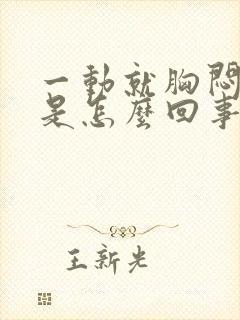 一動就胸悶
是怎麼回事
王新光